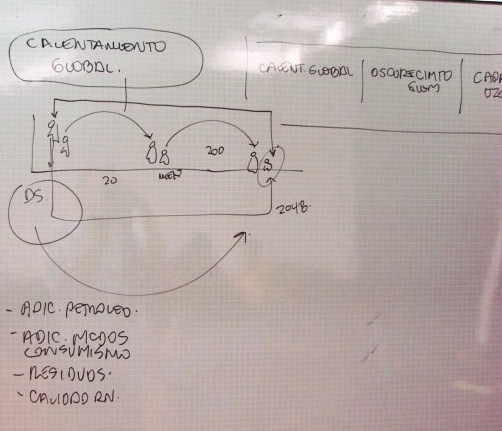 CALENTAMIENTO
GLOBAL.
CALENT. GLOBAL
OSCURECIMTO
CAPA
200
20
DS.
2048.
- ADIC. PETROLEO.
- ADIC. MODOS
CONSUMISMO
- RESIDUOS.
- CALIDAD RN.